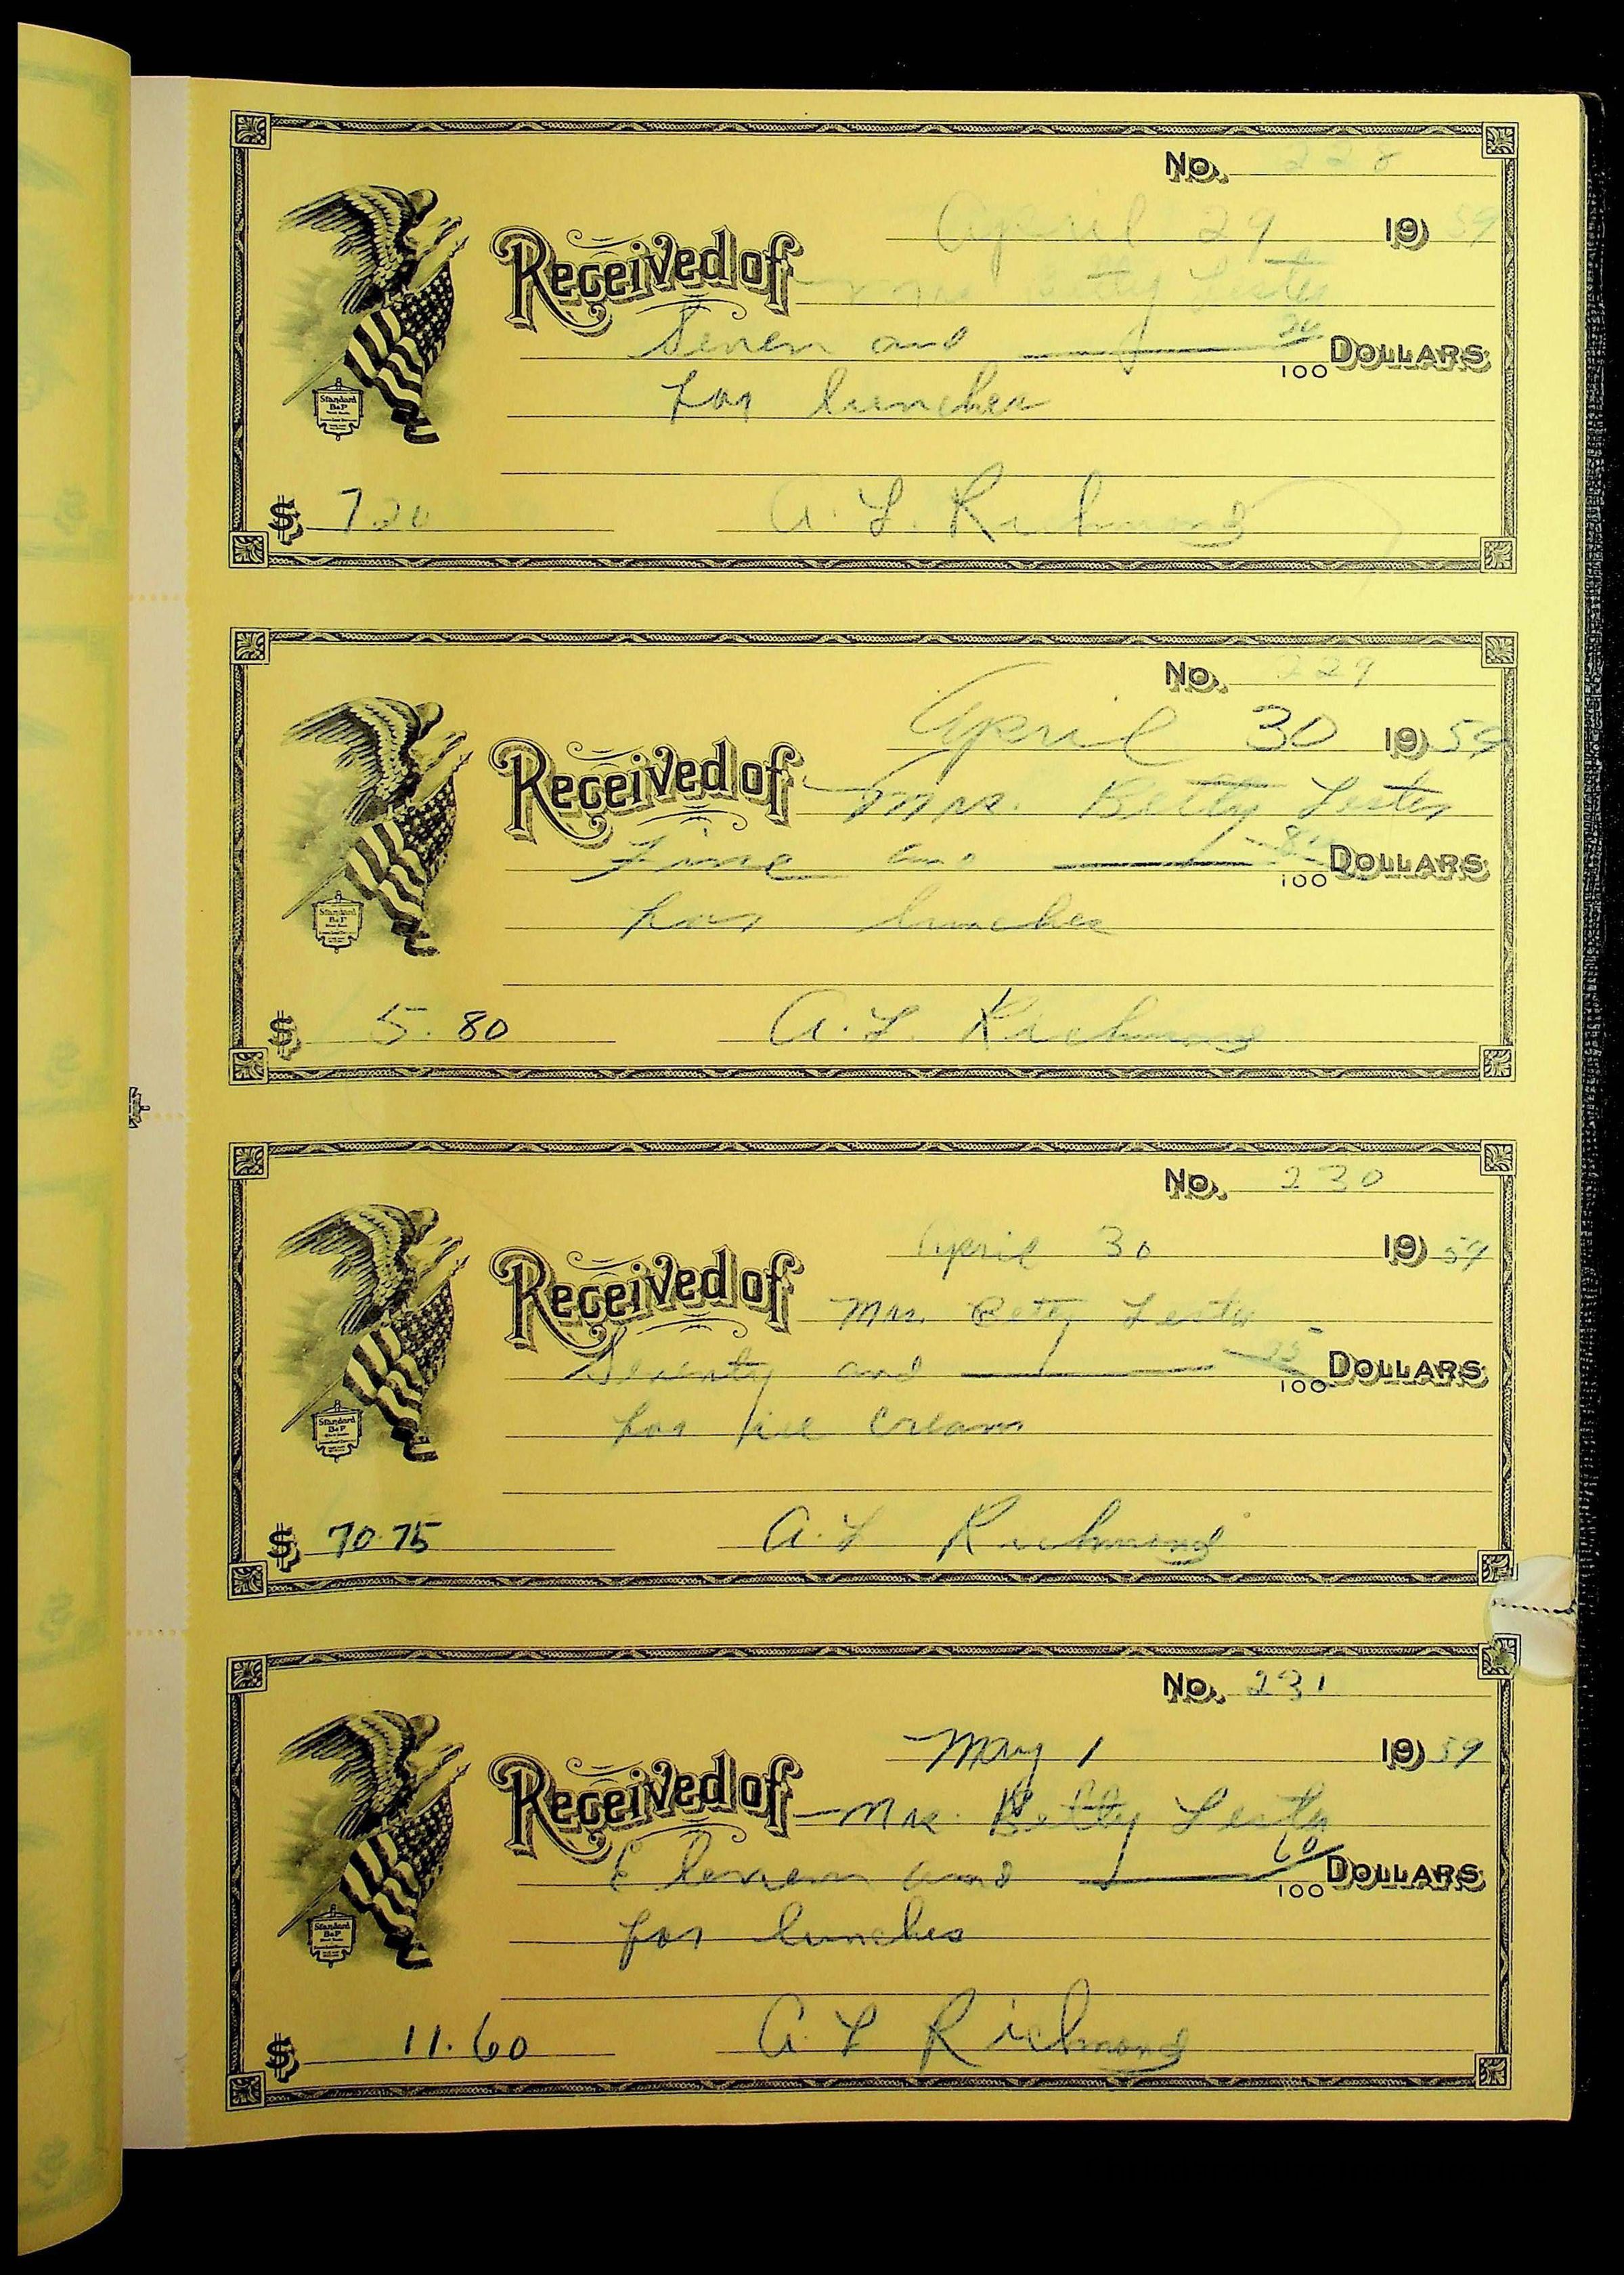 No. 228
April 29 1959
Received of Mrs Betty Lester
Seven and 20/100 DOLLARS
for lunches
Standard
B&P
$ 7 20 A. L. Richmond
No. 229
April 30 1959
Received of Mrs. Betty Lester
Five and 80/100 DOLLARS
for lunches
Standard
B&P
$ 5.80 A. L. Richmond
No. 230
April 30 1959
Received of Mrs. Betty Lester
Seventy and 75/100 DOLLARS
for ice cream
Standard
B&P
$ 70.75 A. L Richmond
No. 231
May 1 1959
Received of Mrs. Betty Lester
Eleven and 60/100 DOLLARS
for lunches
Standard
B&P
$ 11.60 A. L Richmond